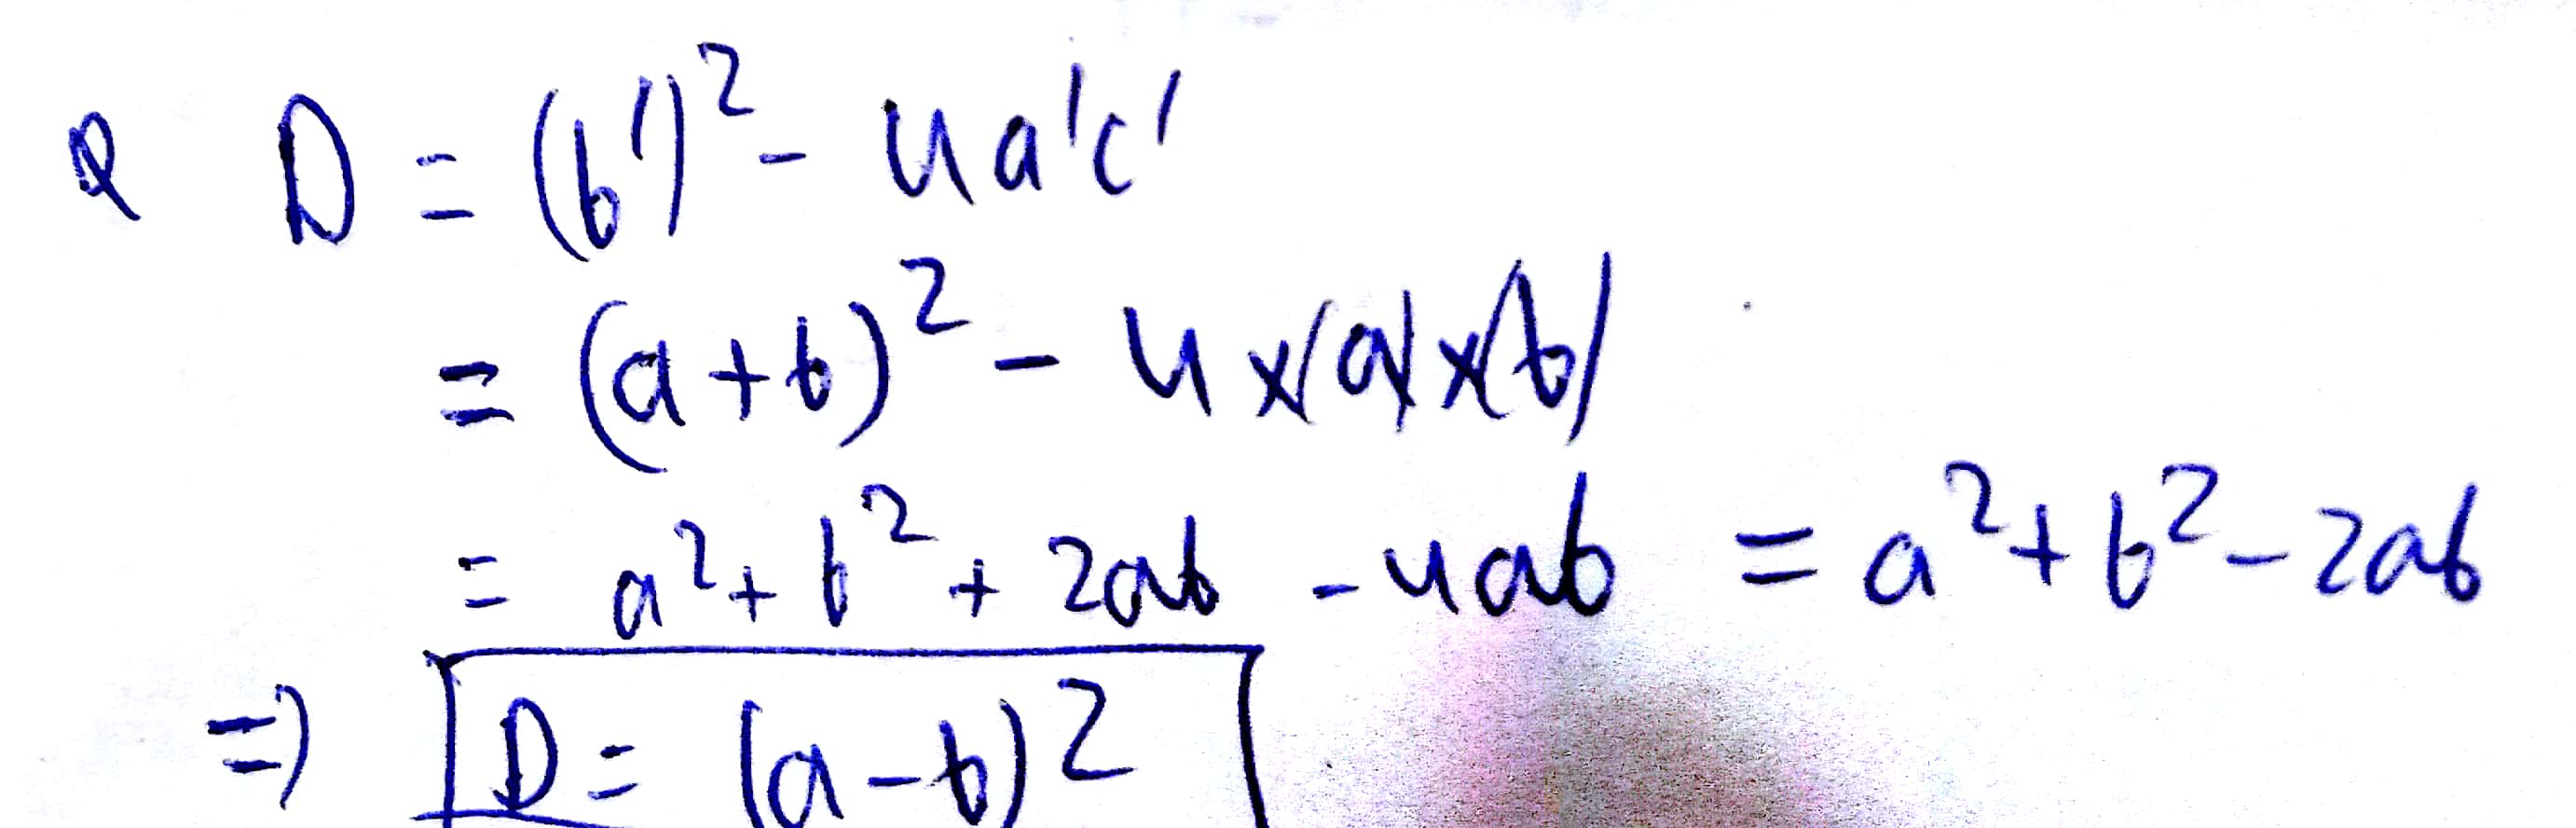 & D = (b')² - 4a'c'
= (a+b)² - 4×(a)×(b)
= a² + b² + 2ab - 4ab = a² + b² - 2ab
=> D = (a-b)²